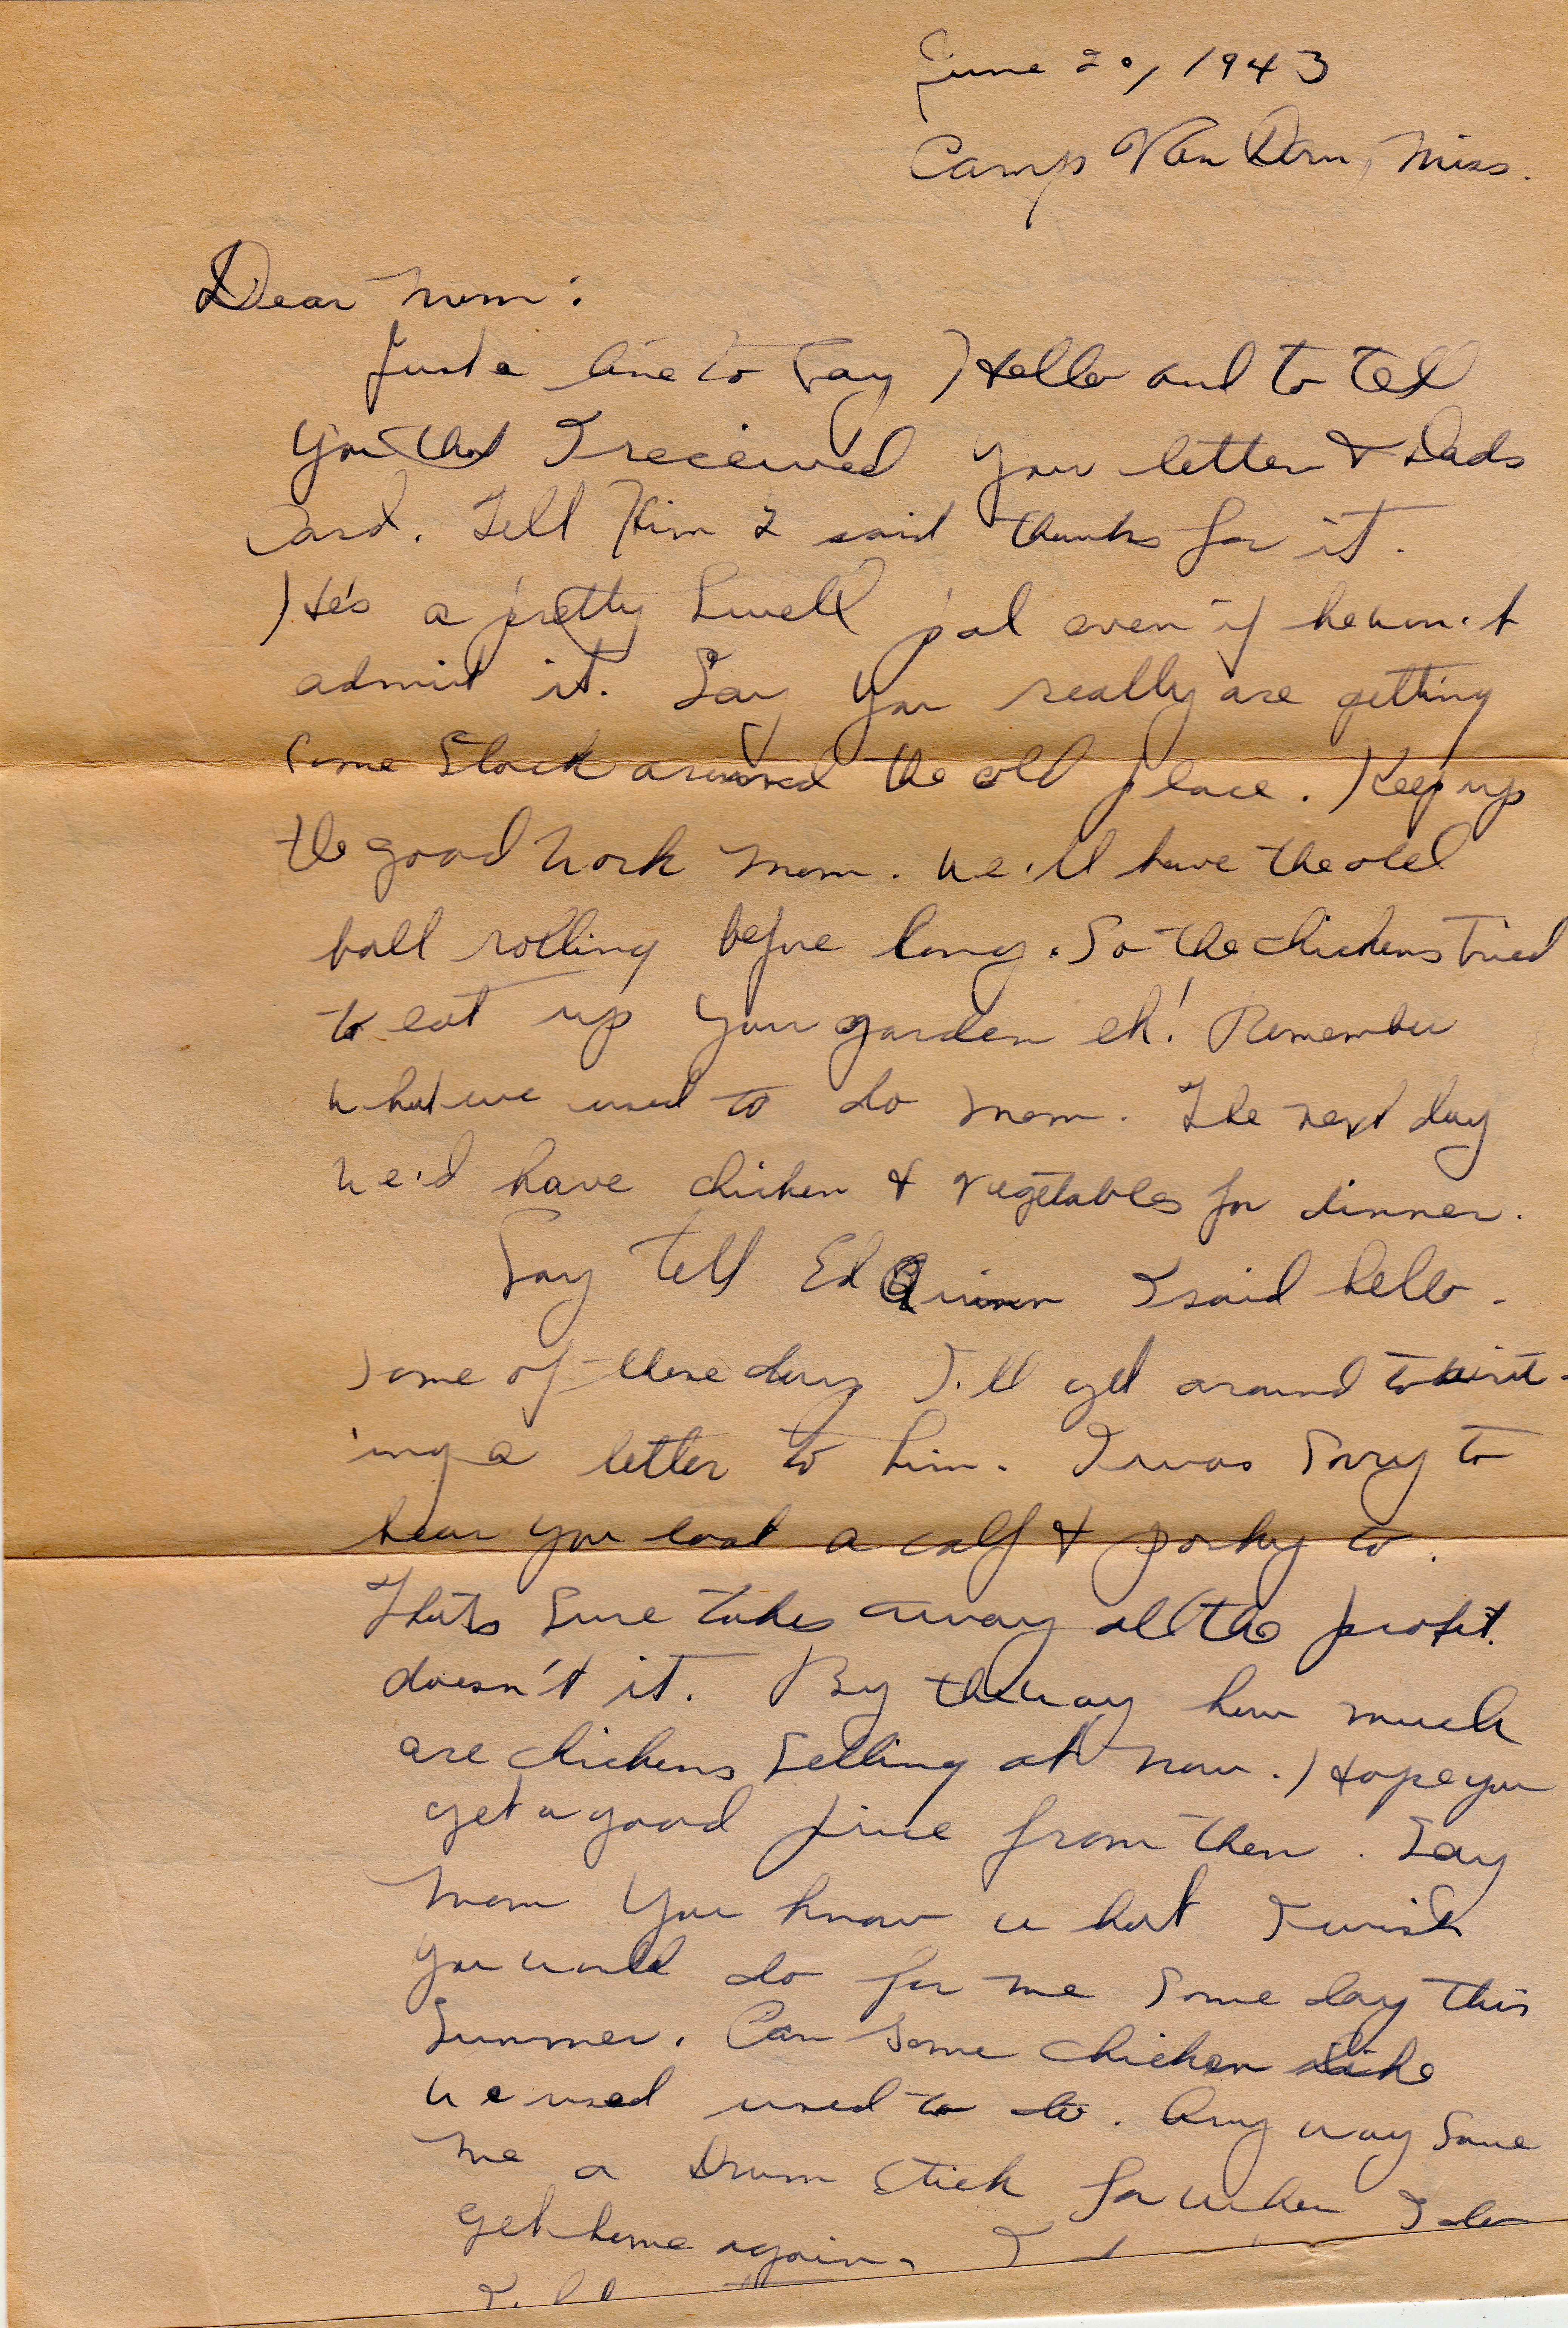 June 20, 1943
Camp Van Dorn, Miss.
Dear Mom:
Just a line to say Hello and to tell
you that I received your letter & Dads
card. Tell Him I said thanks for it.
He's a pretty Swell pal even if he won't
admit it. Say you really are getting
some Stock around the old place. Keep up
the good work Mom. We'll have the old
ball rolling before long. So the chickens tried
to eat up your garden eh! Remember
what we used to do Mom. The next day
we'd have chicken & vegetables for dinner.
Say tell Ed Quinn I said hello.
Some of these days I'll get around to writ-
ing a letter to him. I was sorry to
hear you lost a calf & porky to.
Thats sure takes away all the profit.
doesn't it. By the way how much
are chickens selling at now. Hope you
get a good price from them. Say
Mom you know what I wish
you would do for me some day this
Summer. Can some chicken like
we used used to do. Any way save
me a Drum Stick for when I do
get home again.